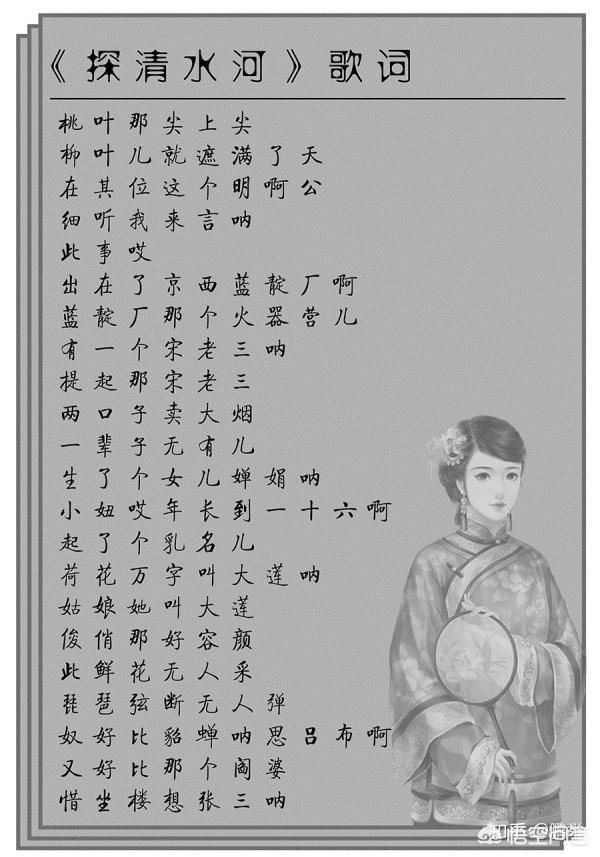 《探清水河》歌词
桃叶那尖上尖
柳叶儿就遮满了天
在其位这个明啊公
细听我来言呐
此事哎
出在了京西蓝靛厂啊
蓝靛厂那个火器营儿
有一个宋老三呐
提起那宋老三
两口子卖大烟
一辈子无有儿
生了个女儿婵娟呐
小妞哎年长到一十六啊
起了个乳名儿
荷花万字叫大莲呐
姑娘她叫大莲
俊俏那好容颜
此鲜花无人采
琵琶弦断无人弹
奴好比貂蝉呐思吕布啊
又好比那个阎婆
惜坐楼想张三呐